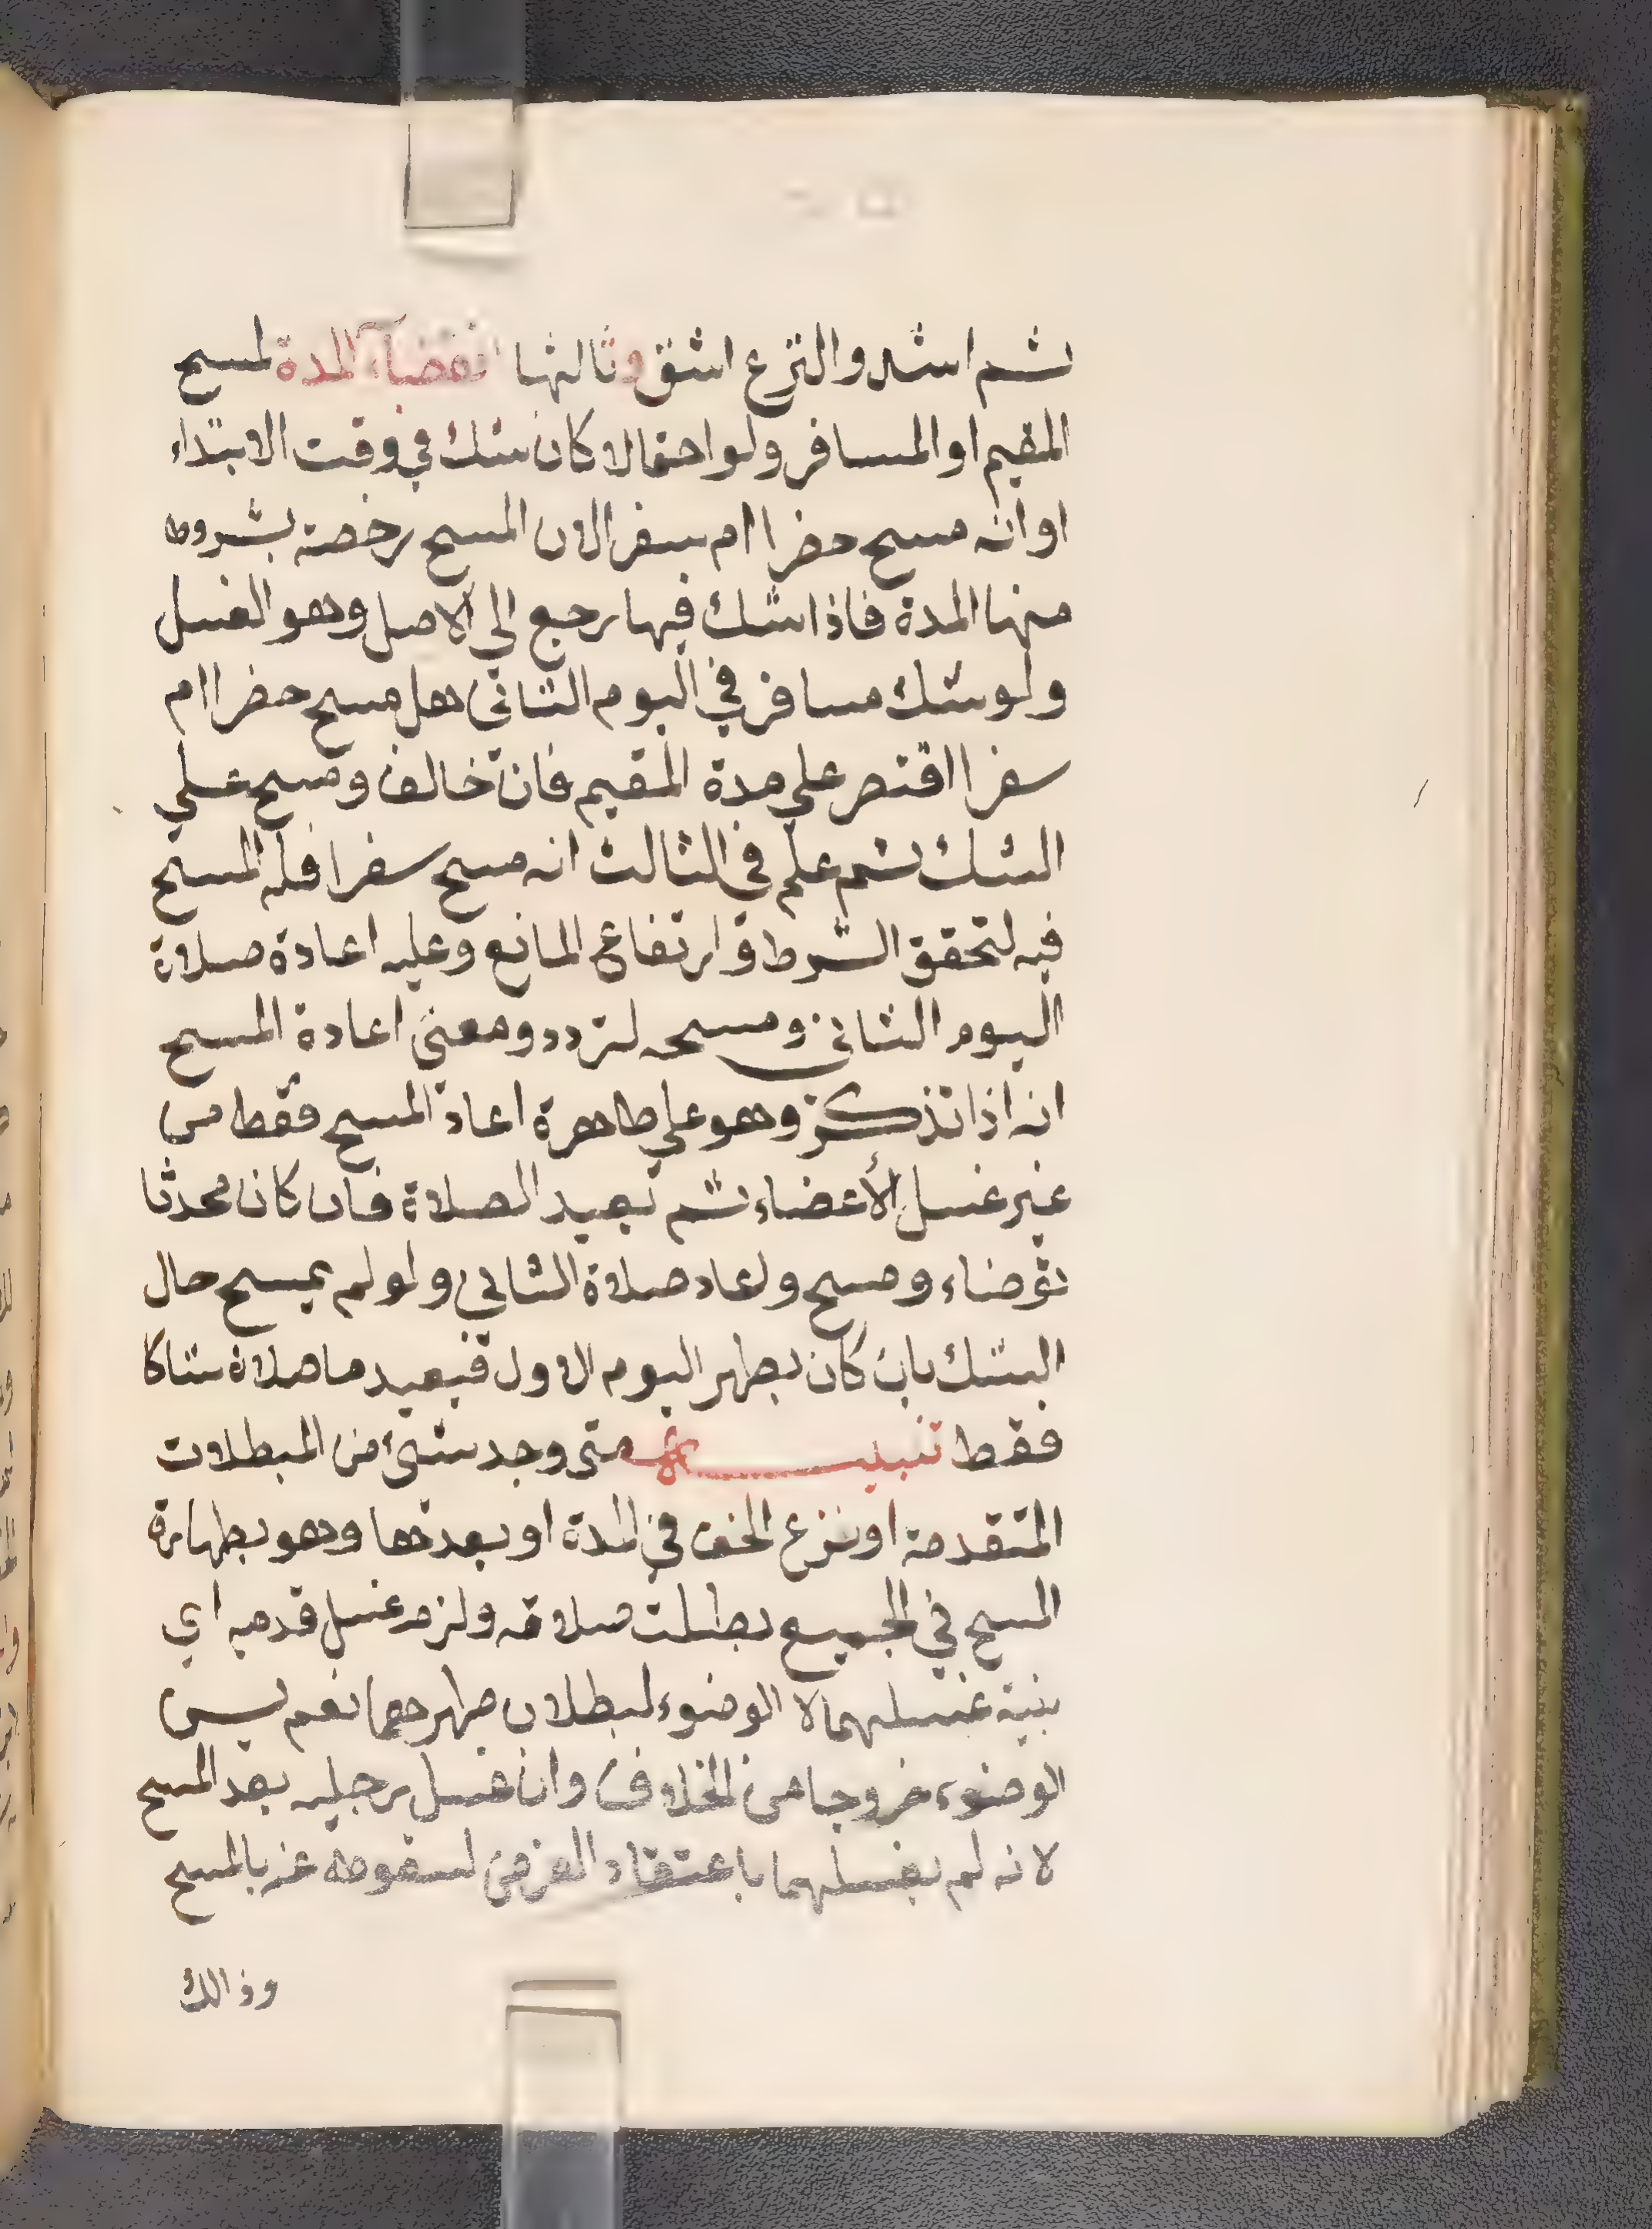 ثم اشد والنزع اشق وثالثها انقضآء المدة لمسح
المقيم او المسافر ولو احتمالا كان شك في وقت الابتداء
او انه مسح حضرا ام سفرا لان المسح رخصة بشروط
منها المدة فاذا شك فيها رجع الي الاصل وهو الغسل
ولو شك مسافر في اليوم الثاني هل مسح حضرا ام
سفرا اقتصر علي مدة المقيم فان خالف ومسح علي
الشك ثم علم في الثالث انه مسح سفرا فله المسح
فيه لتحقق الشرط وارتفاع المانع وعليه اعادة صلاة
اليوم الثاني ومسحه لتردد ومعنى اعادة المسح
انه اذا تذكر وهو علي طاهرة اعاد المسح فقط من
غير غسل الأعضاء ثم تعيد الصلاة فان كان محدثا
توضاء ومسح ولعاد صلاة الثاني ولو لم يمسح حال
الشك بان كان بطهر اليوم الاول فيعيد ما صلاة شاكا
فقط تنبيه متى وجد شئ من المبطلات
المتقدمة او نزع الخف في المدة او بعدها وهو بطهارة
المسح في الجميع بطلت صلاته ولزم غسل قدميه اي
بنية غسلهما لا الوضوء لبطلان طهرهما نعم يسن
الوضوء خروجا من الخلاف وان غسل رجليه بعد المسح
لانه لم يغسلهما باعتقاد الفرض لسقوطه عنه بالمسح
وذالك